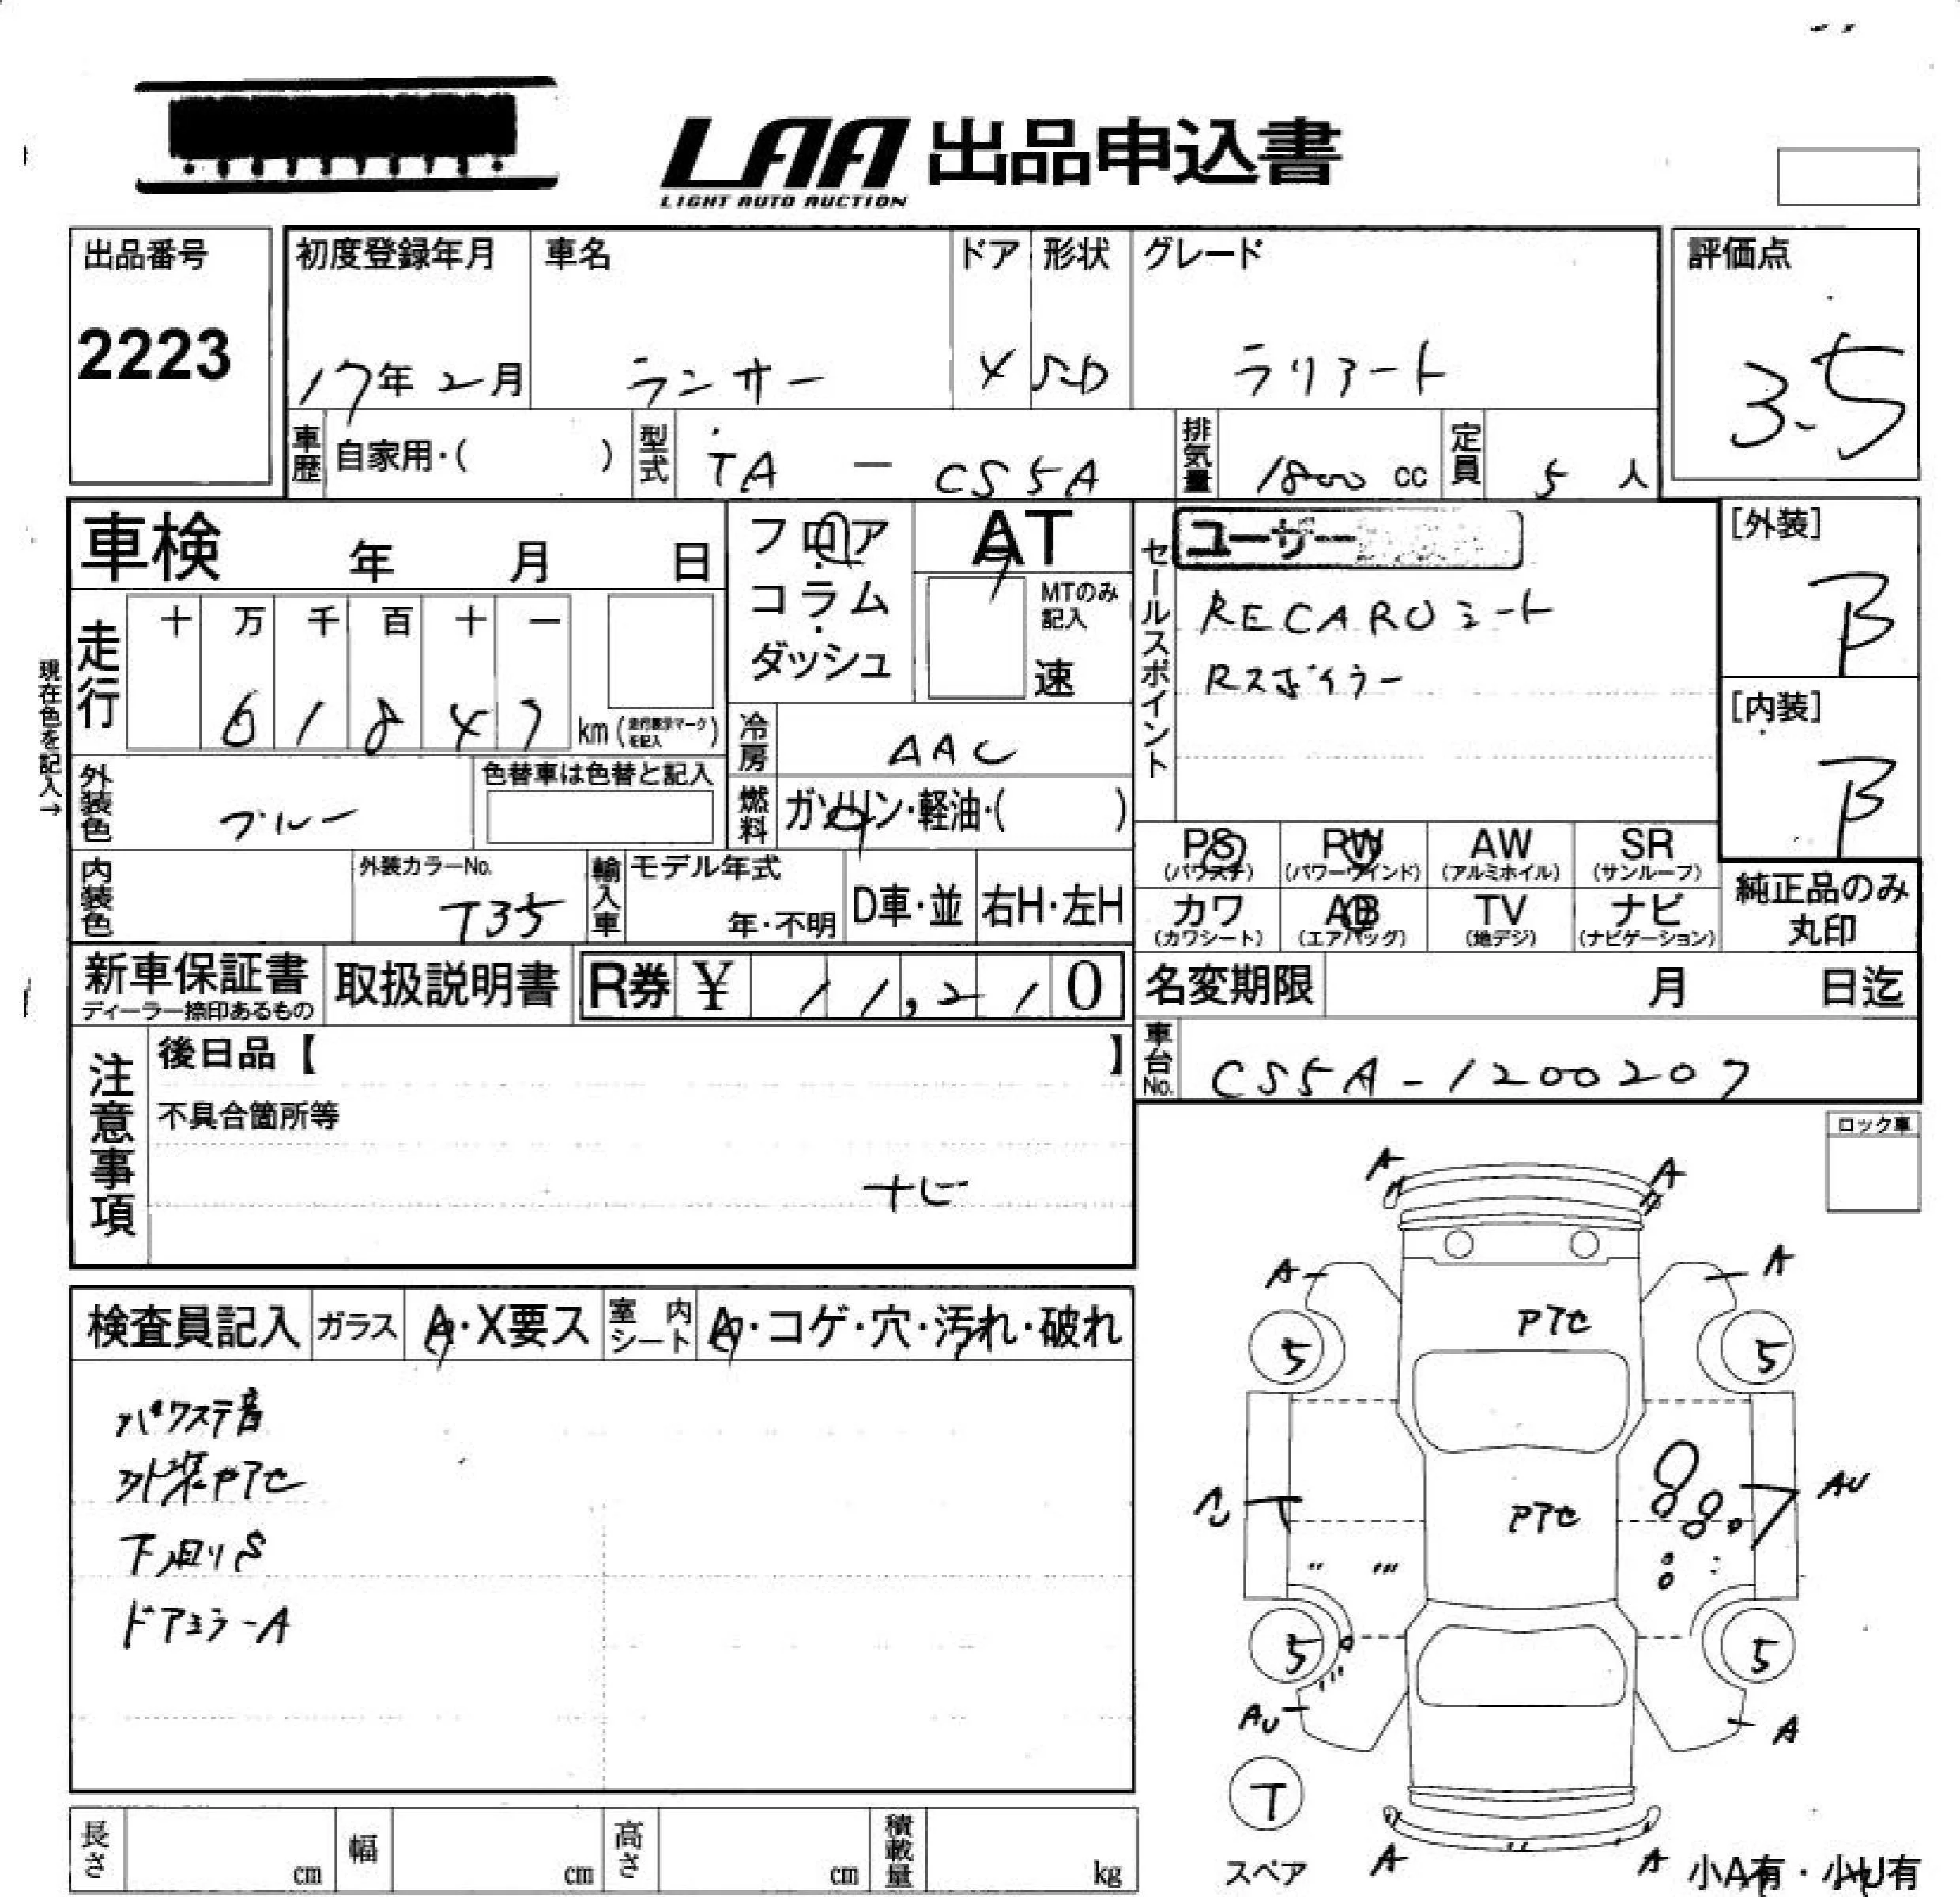 LAA 出品申込書
LIGHT AUTO AUCTION
出品番号 初度登録年月 車名 ドア 形状 グレード 評価点
2223 17年2月 ランサー 4 SD ラリアート 3.5
車歴 自家用・( ) 型式 TA - CS5A 排気量 1800 cc 定員 5 人
車検 年 月 日 フロア AT セールスポイント ユーザー [外装]
コラム MTのみ記入 RECAROシート B
ダッシュ 速 Rスポイラー [内装]
走行 十 万 千 百 十 一 B
61847 km (走行表示マークを記入)
現在色を記入→
冷房 AAC
外装色 ブルー 色替車は色替と記入 燃料 ガソリン・軽油・( )
PS RW AW SR
(パワステ) (パワーウインド) (アルミホイル) (サンルーフ)
内装色 外装カラーNo. T35 輸入車 モデル年式 年・不明 D車・並 右H・左H
カワ AB TV ナビ 純正品のみ
(カワシート) (エアバッグ) (地デジ) (ナビゲーション) 丸印
新車保証書 取扱説明書 R券 ¥ 11,210 名変期限 月 日迄
ディーラー捺印あるもの
注意事項 後日品【 】 車台No. CS5A-1200207
不具合箇所等 ロック車
ナビ
検査員記入 ガラス A・X要ス 室内シート A・コゲ・穴・汚れ・破れ
パワステ音
外装ヤケ
下回りS
ドアミラーA
A A
A A
5 5
AU
5 5
AU A
T
スペア A A 小A有・小U有
長さ cm 幅 cm 高さ cm 積載量 kg